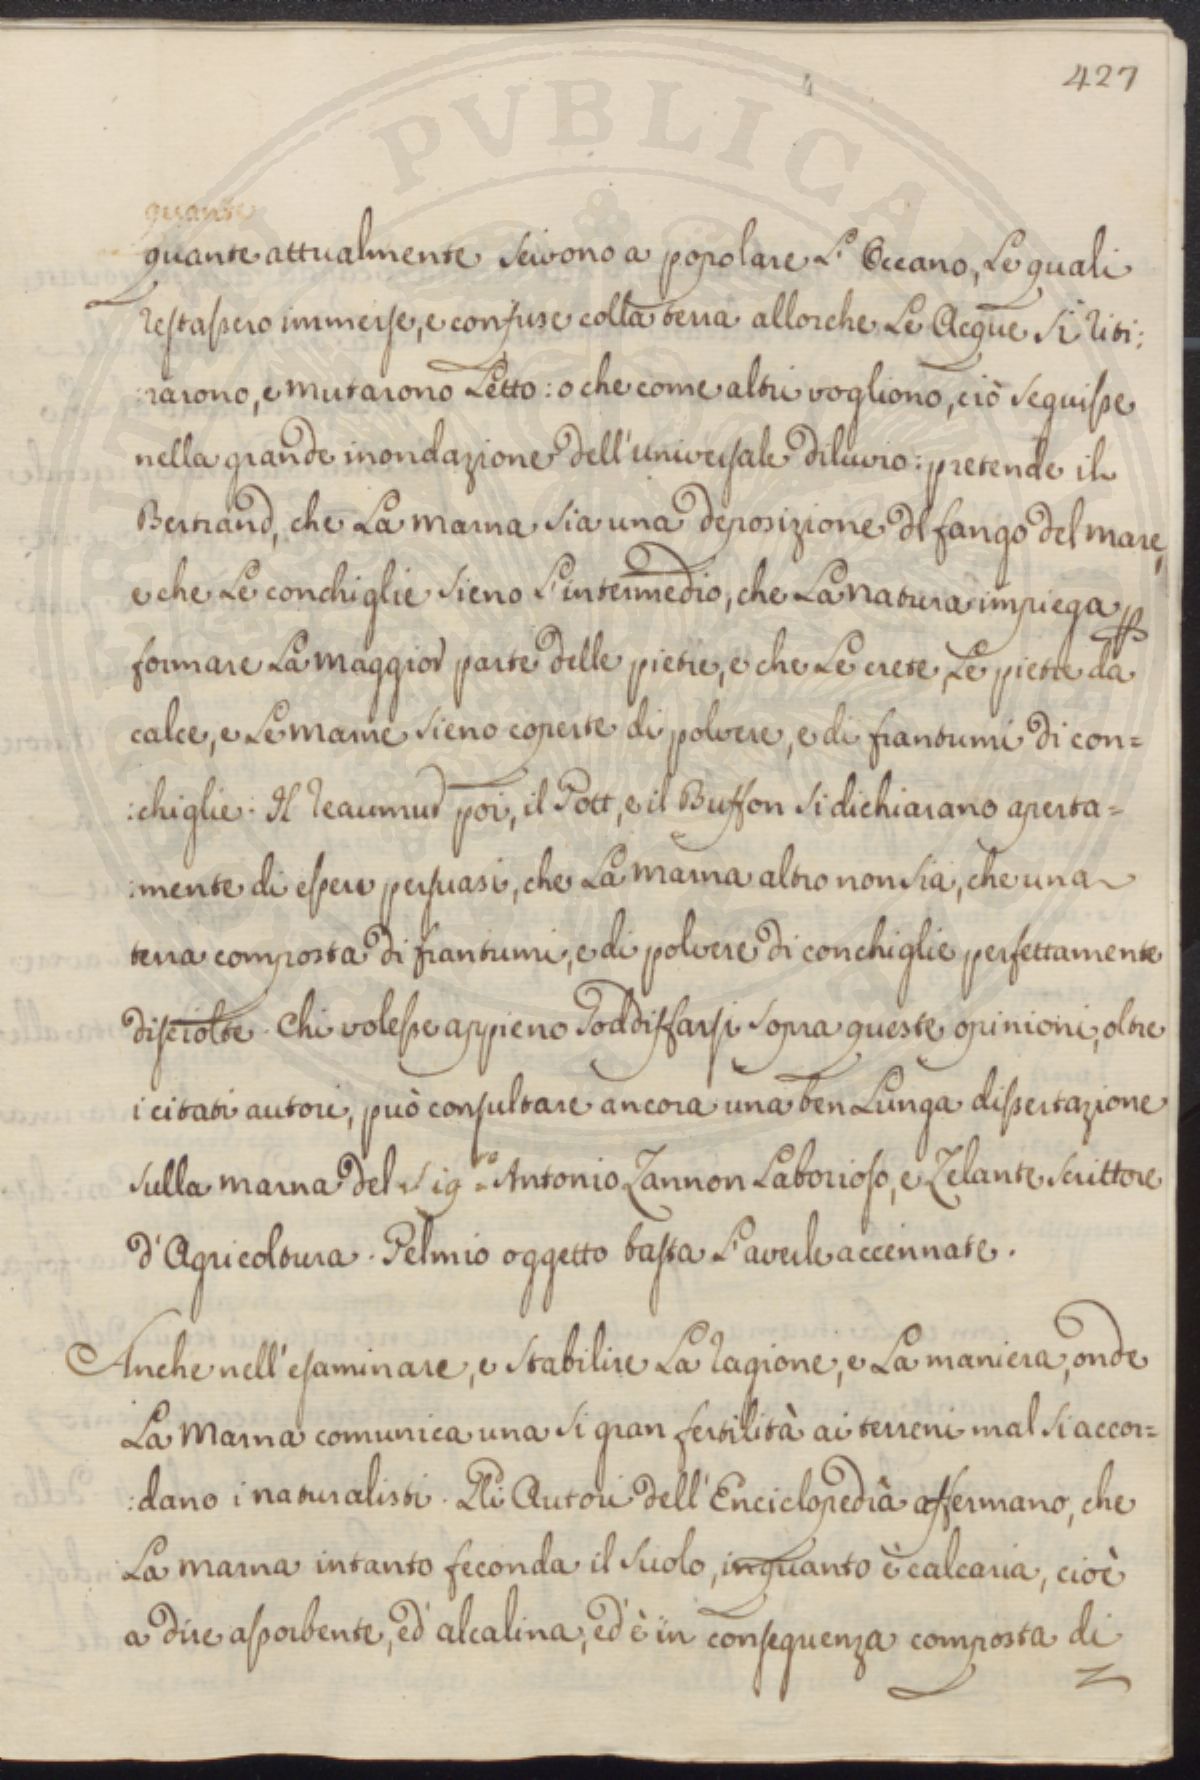 427
PVBLICA
quante
quante attualmente servono a popolare L'Occano, Le quali
restassero immerse, e confuse colla terra allorche Le Acque si riti:
:rarono, e mutarono Letto: o che come altri vogliono, ciò seguisse
nella grande inondazione dell'universale diluvio: pretende il
Bertrand, che La marna sia una deposizione del fango del mare,
e che Le conchiglie sieno L'intermedio, che La natura impiega p
formare La maggior parte delle pietre, e che Le crete, Le pietre da
calce, e Le marne sieno coperte di polvere, e di frantumi di con=
:chiglie. Il Reaumur poi, il Pott, e il Buffon si dichiarano aperta=
:mente di essere persuasi, che La marna altro non sia, che una
terra composta di frantumi, e di polvere di conchiglie perfettamente
disciolte. Chi volesse appieno soddisfarsi sopra queste opinioni, oltre
i citati autori, può consultare ancora una ben Lunga dissertazione
sulla marna del Sig.re Antonio Zannon Laborioso, e Zelante scrittore
d'Agricoltura. Pel mio oggetto basta L'averle accennate.
Anche nell'esaminare, e stabilire La ragione, e La maniera, onde
La Marna comunica una si gran fertilità ai terreni mal si accor=
:dano i naturalisti. Gli Autori dell'Enciclopedia affermano, che
La marna intanto feconda il suolo, inquanto è calcaria, cioè
a dire assorbente, ed alcalina, ed è in conseguenza composta di